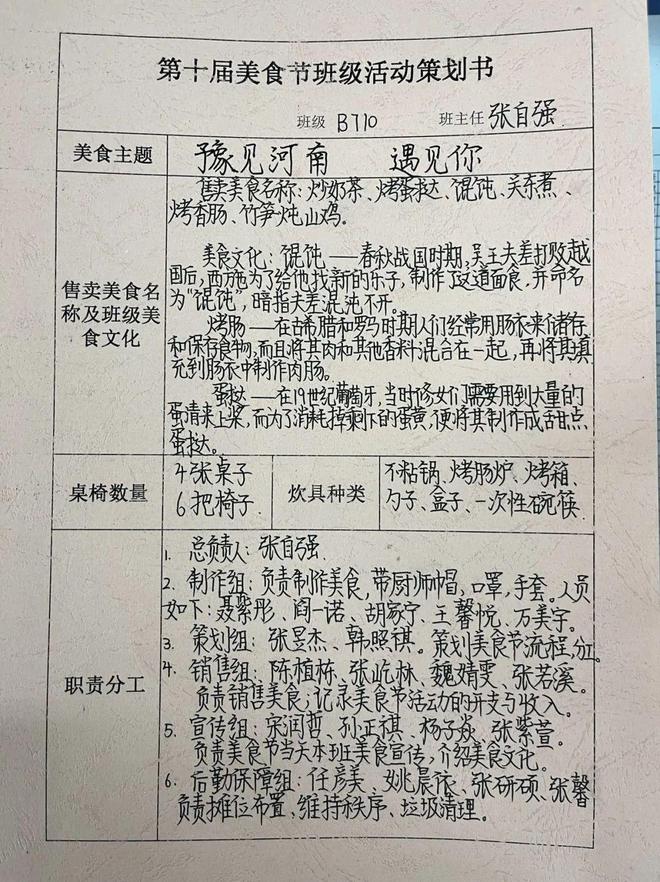 第十届美食节班级活动策划书
班级 B710 班主任 张自强
美食主题
豫见河南 遇见你
售卖美食名称及班级美食文化
售卖美食名称：炒奶茶、烤蛋挞、馄饨、关东煮、
烤香肠、竹笋炖山鸡.
美食文化：馄饨——春秋战国时期，吴王夫差打败越
国后，西施为了给他找新的乐子，制作了这道面食，并命名
为“馄饨”，暗指夫差混沌不开。
烤肠——在古希腊和罗马时期人们经常用肠衣来储存
和保存食物，而且将其肉和其他香料混合在一起，再将其填
充到肠衣中制作肉肠。
蛋挞——在19世纪葡萄牙，当时修女们需要用到大量的
蛋清来上浆，而为了消耗掉剩下的蛋黄，便将其制作成甜点
蛋挞。
桌椅数量
4张桌子
6把椅子
炊具种类
不粘锅、烤肠炉、烤箱、
勺子、盒子、一次性碗筷
职责分工
1. 总负责人：张自强
2. 制作组：负责制作美食，带厨师帽，口罩，手套。人员
如下：聂紫彤、阎一诺、胡家宁、王馨悦、万美宇。
3. 策划组：张昱杰、韩照祺。策划美食节流程，分工。
4. 销售组：陈植栋、张屹林、魏婧雯、张若溪。
负责销售美食；记录美食节活动的开支与收入。
5. 宣传组：宋闰哲、孙正祺、杨子焱、张紫萱。
负责美食节当天本班美食宣传，介绍美食文化。
6. 后勤保障组：任彦美、姚晨依、张研硕、张馨
负责摊位布置，维持秩序、垃圾清理。